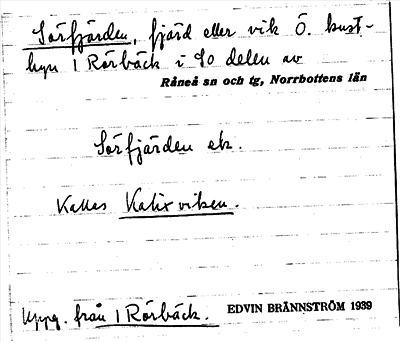 Sörfjärden, fjärd eller vik Ö. kust-
byn 1 Rörbäck i SO delen av
Råneå sn och tg, Norrbottens län
Sörfjärden ek.
Kallas Kalixviken.
Uppg. från 1 Rörbäck. EDVIN BRÄNNSTRÖM 1939